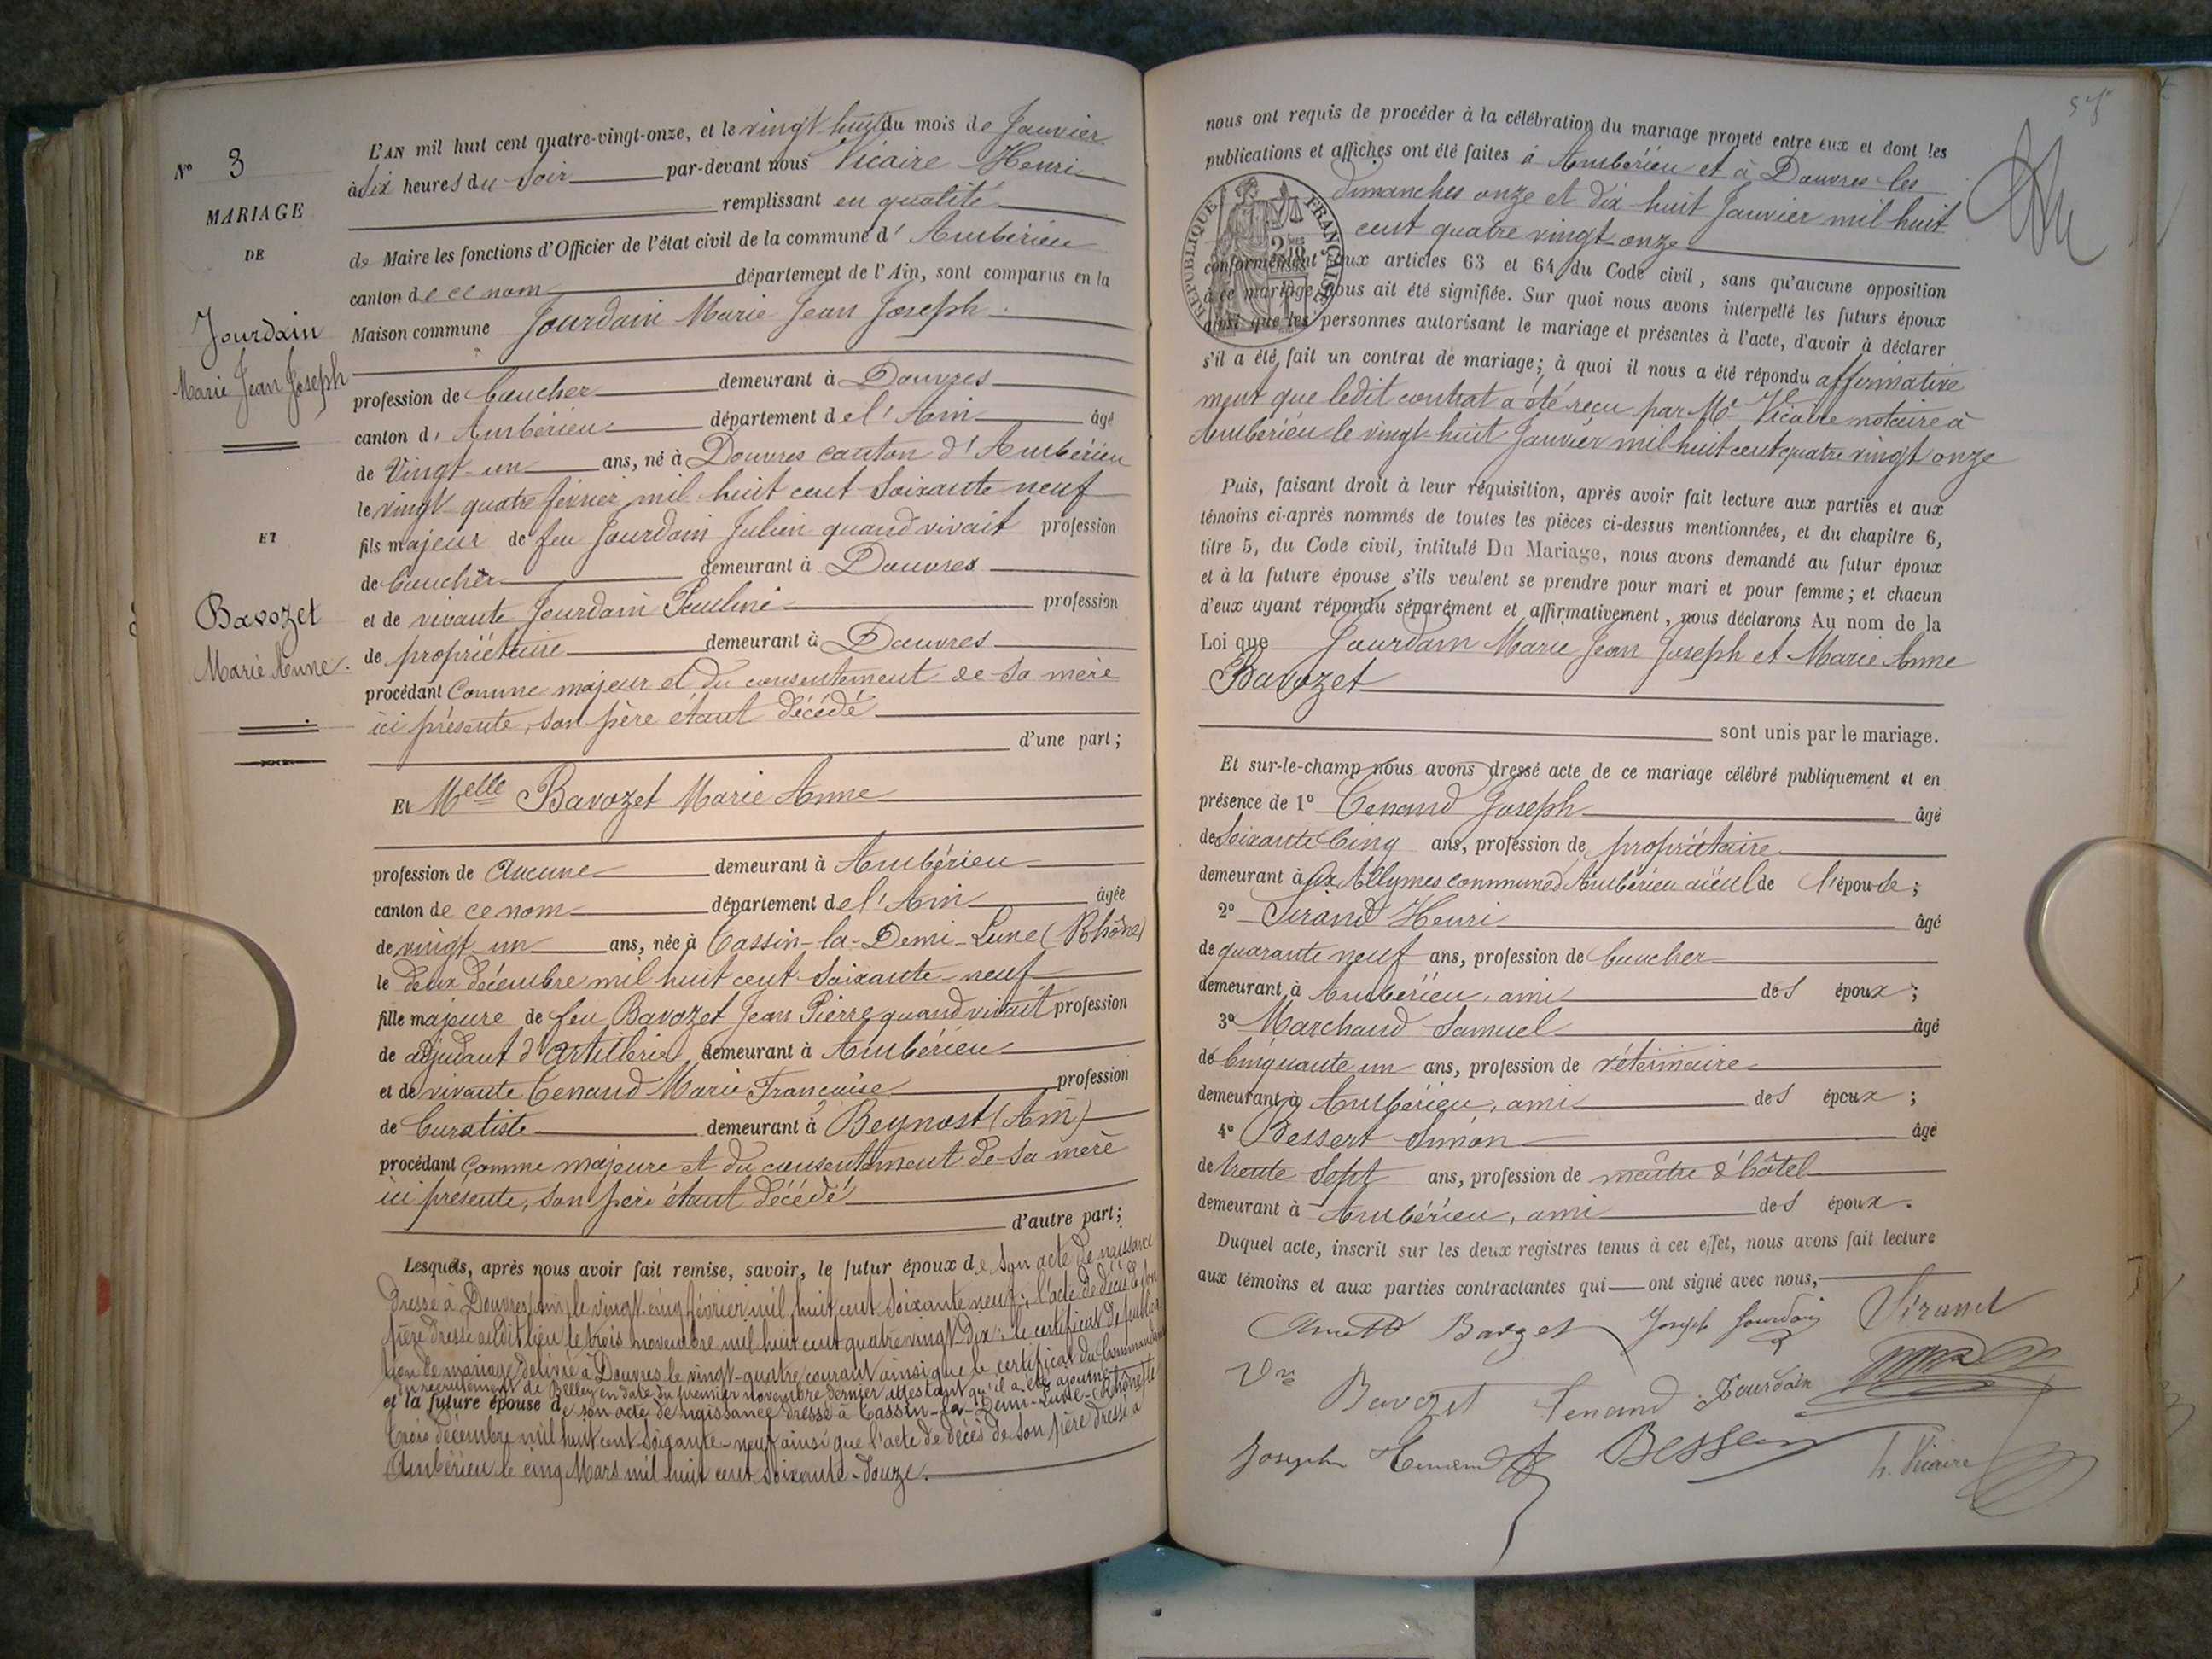 N° 3
MARIAGE
DE
Jourdain
Marie Jean Joseph
ET
Bavozet
Marie Anne.
L'AN mil huit cent quatre-vingt-onze, et le vingt huit du mois de Janvier
à Six heures du Soir par-devant nous Vicaire Henri
remplissant en qualité
de Maire les fonctions d'Officier de l'état civil de la commune d' Ambérieu
canton de ce nom département de l'Ain, sont comparus en la
Maison commune Jourdain Marie Jean Joseph
profession de boucher demeurant à Douvres
canton d' Ambérieu département de l'Ain âgé
de Vingt-un ans, né à Douvres canton d'Ambérieu
le vingt-quatre février mil huit cent Soixante neuf
fils majeur de feu Jourdain Julien quand vivait profession
de boucher demeurant à Douvres
et de vivante Jourdain Pauline profession
de propriétaire demeurant à Douvres
procédant comme majeur et du consentement de sa mère
ici présente, son père étant décédé
d'une part;
Et Melle Bavozet Marie Anne
profession de aucune demeurant à Ambérieu
canton de ce nom département de l'Ain âgée
de vingt-un ans, née à Tassin-la-Demi-Lune (Rhône)
le deux décembre mil huit cent soixante-neuf
fille majeure de feu Bavozet Jean Pierre quand vivait profession
de adjudant d'artillerie demeurant à Ambérieu
et de vivante Tenand Marie Françoise profession
de buratiste demeurant à Beynost (Ain)
procédant comme majeure et du consentement de sa mère
ici présente, son père étant décédé
d'autre part;
Lesquels, après nous avoir fait remise, savoir, le futur époux de son acte de naissance
dressé à Douvres (Ain) le vingt-cinq février mil huit cent soixante neuf; l'acte de décès de son
père dressé audit lieu le trois novembre mil huit cent quatre vingt-dix; le certificat de publica-
tion de mariage délivré à Douvres le vingt-quatre courant ainsi que le certificat du Commandant
du recrutement de Belley en date du premier novembre dernier attestant qu'il a été ajourné
et la future épouse de son acte de naissance dressé à Tassin-la-Demi-Lune-Rhône le
trois décembre mil huit cent soixante-neuf ainsi que l'acte de décès de son père dressé à
Ambérieu le cinq Mars mil huit cent soixante-douze.
nous ont requis de procéder à la célébration du mariage projeté entre eux et dont les
publications et affiches ont été faites à Ambérieu et à Douvres les
dimanches onze et dix huit Janvier mil huit
cent quatre vingt onze
REPUBLIQUE FRANÇAISE
conformément aux articles 63 et 64 du Code civil, sans qu'aucune opposition
à ce mariage nous ait été signifiée. Sur quoi nous avons interpellé les futurs époux
ainsi que les personnes autorisant le mariage et présentes à l'acte, d'avoir à déclarer
s'il a été fait un contrat de mariage; à quoi il nous a été répondu affirmative
ment que ledit contrat a été reçu par Me Vicaire notaire à
Ambérieu le vingt-huit Janvier mil huit cent quatre vingt onze
Puis, faisant droit à leur réquisition, après avoir fait lecture aux parties et aux
témoins ci-après nommés de toutes les pièces ci-dessus mentionnées, et du chapitre 6,
titre 5, du Code civil, intitulé Du Mariage, nous avons demandé au futur époux
et à la future épouse s'ils veulent se prendre pour mari et pour femme; et chacun
d'eux ayant répondu séparément et affirmativement, nous déclarons Au nom de la
Loi que Jourdain Marie Jean Joseph et Marie Anne
Bavozet
sont unis par le mariage.
Et sur-le-champ nous avons dressé acte de ce mariage célébré publiquement et en
présence de 1° Tenand Joseph âgé
de Soixante Cinq ans, profession de propriétaire
demeurant à aux Allymes commune d'Ambérieu aïeul de l'épouse;
2° Sirand Henri âgé
de quarante neuf ans, profession de boucher
demeurant à Ambérieu, ami des époux;
3° Marchand Samuel âgé
de Cinquante un ans, profession de véterinaire
demeurant à Ambérieu, ami des époux;
4° Bessert Simon âgé
de trente Sept ans, profession de maître d'hôtel
demeurant à Ambérieu, ami des époux.
Duquel acte, inscrit sur les deux registres tenus à cet effet, nous avons fait lecture
aux témoins et aux parties contractantes qui ont signé avec nous,
Joseph Jourdain Sirand
Vve Bavozet Tenand Jourdain
Joseph Bessert h. Vicaire